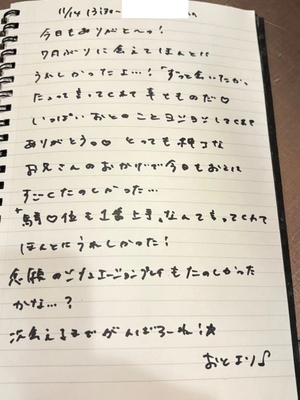 11/14 13:30~
今日もありがと〜っ!
7月ぶりに会えてほんとに
うれしかったよ…!「ずっと会いたかっ
た」って言ってくれて
ものだ♡
いっぱいおとのことヨシヨシしてくれて
ありがとう。♡ とっても
お兄さんのおかげで今日もおとに
すごくたのしかった…
騎♡位も1番上手。なんて言ってくれて
ほんとにうれしかった!
念願のシチュエーションプレイもたのしかった
かな…?
次会えるまでがんばろーね!☆
おとより♪